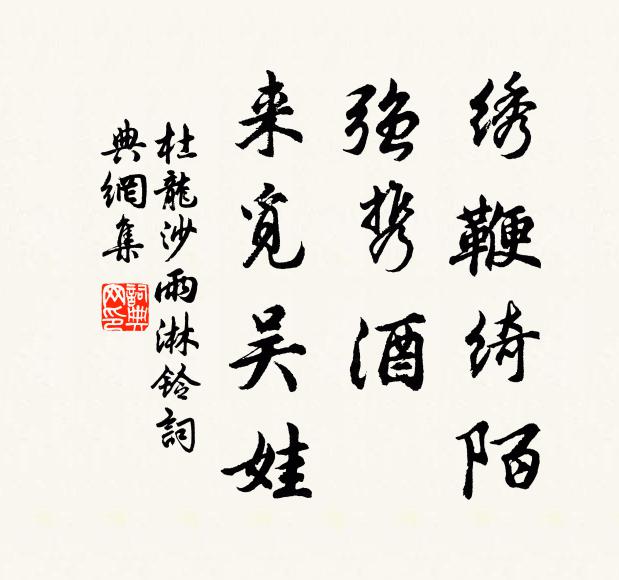 绣鞭绮陌
强携酒
来觅吴娃
杜龍沙雨淋铃詞
典網集
詞典网印